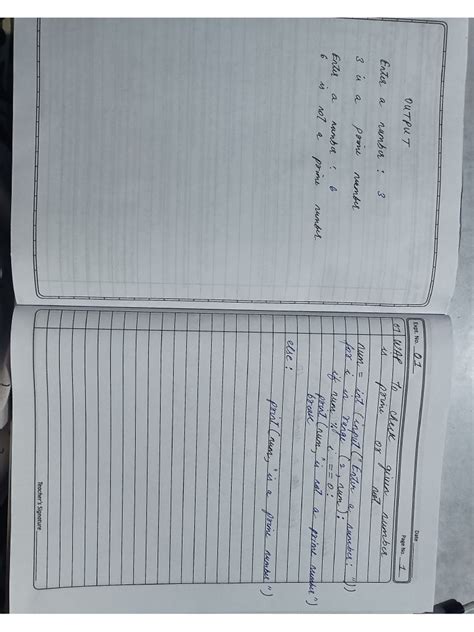 OUTPUT
Enter a number : 3
3 is a prime number
Enter a number : 6
6 is not a prime number
Date
Expt. No. 01
Page No. 1
WAP to check given number
is prime or not
num = int (input ("Enter a number: "))
for i in range (2, num):
if num % i == 0:
print (num, "is not a prime number")
break
else :
print (num, "is a prime number")
Teacher's Signature